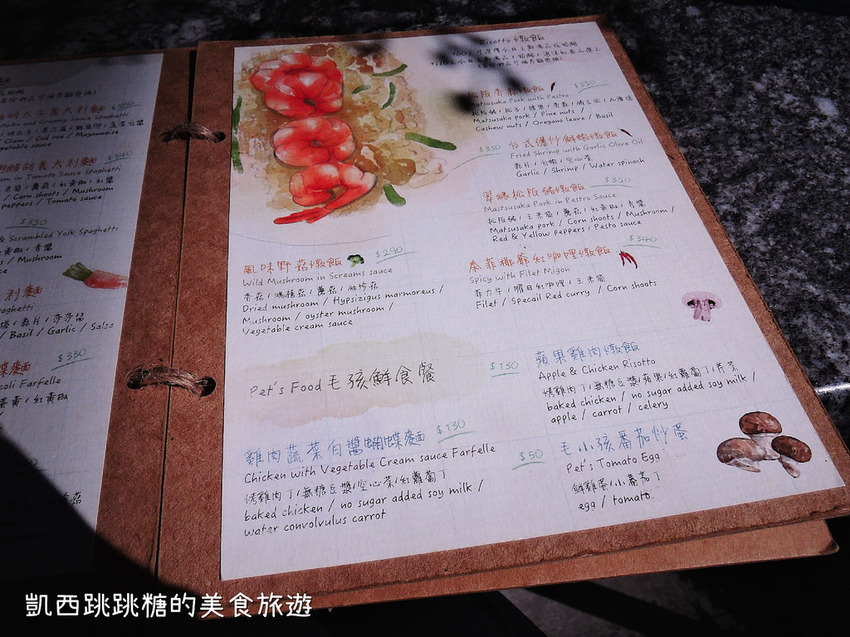 胡水牛義大利麵 $350
Clam / Cod roe / Mayonnaise
義大利麵 $340
in Tomato Sauce Spaghetti
/ Corn shoots / Mushroom
Peppers / Tomato sauce
$350
& Scrambled Yolk Spaghetti
/ Mushroom
利麵
/ Basil / Garlic / Salsa
蝶麵 $330
Farfelle
Risotto 燉飯
$350
Matsusaka Pork with Pestro
Matsusaka pork / Pine nuts /
Cashew nuts / Oregano leave / Basil
$330 台式爆炒鮮蝦燉飯
Fried Shrimp with Garlic Olive Oil
蒜片 / 白蝦 / 空心菜
Garlic / Shrimp / Water spinach
翠綠松阪豬燉飯 $350
Mastsusaka Pork in Pestro Sauce
松阪豬 / 玉米筍 / 蘑菇 / 紅黃椒 / 青醬
Matsusaka pork / Corn shoots / Mushroom /
Red & Yellow peppers / Pesto sauce
泰菲椰爺紅咖哩燉飯 $340
Spicy with Filet Migon
菲力牛 / 曙日紅咖哩 / 玉米筍
Filet / Specail Red curry / Corn shoots
風味野菇燉飯 $290
Wild Mushroom in Screams sauce
香菇 / 鴻禧菇 / 蘑菇 / 秀珍菇
Dried mushroom / Hypsizigus marmoreus /
Mushroom / oyster mushroom /
Vegetable cream sauce
Pet's Food 毛孩鮮食餐
$130 蘋果雞肉燉飯
Apple & Chicken Risotto
烤雞肉丁 / 無糖豆漿 / 蘋果 / 紅蘿蔔丁 / 芹菜
baked chicken / no sugar added soy milk /
apple / carrot / celery
雞肉蔬菜白醬蝴蝶麵 $130
Chicken with Vegetable Cream sauce Farfelle
烤雞肉丁 / 無糖豆漿 / 空心菜 / 紅蘿蔔丁
baked chicken / no sugar added soy milk /
water convolvulus carrot
$50 毛小孩番茄炒蛋
Pet's Tomato Egg
鮮雞蛋 / 小番茄丁
egg / tomato
凱西跳跳糖的美食旅遊